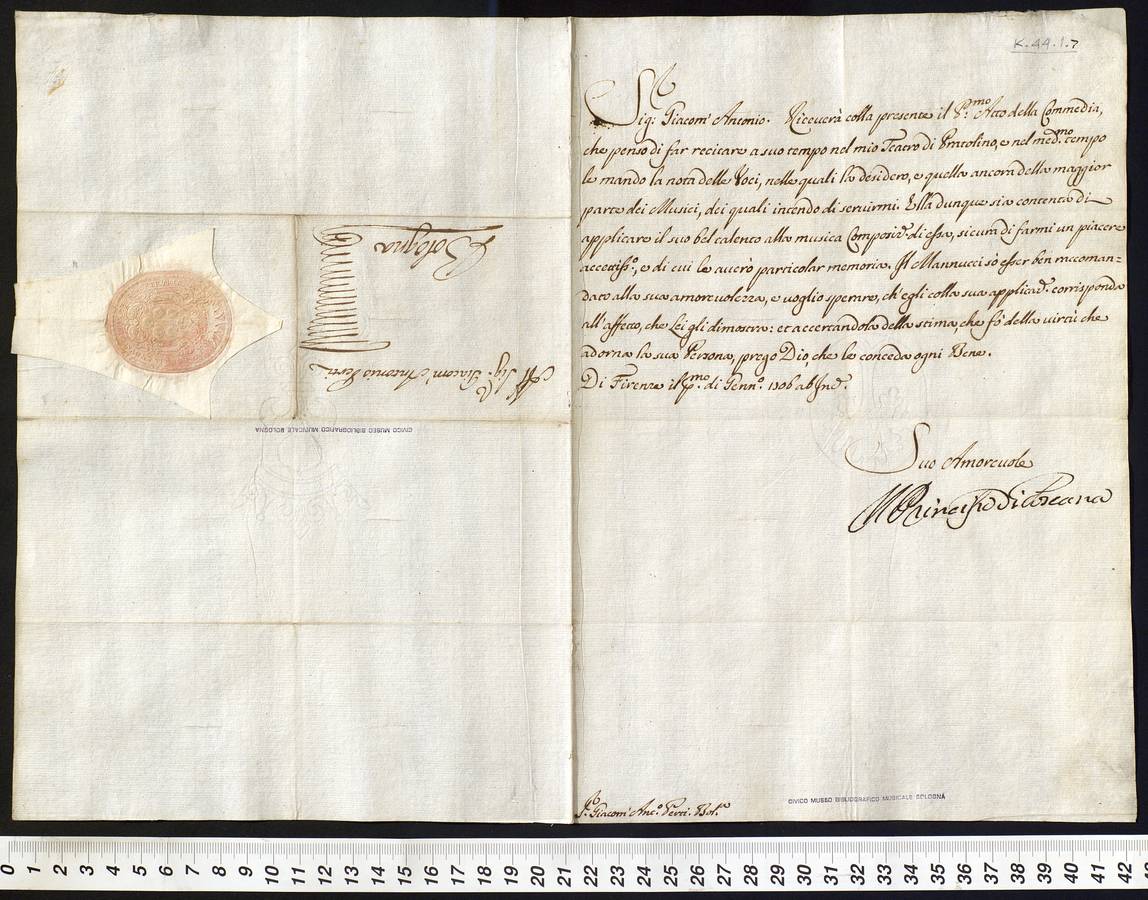 K.44.1.7
Sig: Giacom' Antonio. Riceverà colla presente il P:mo Atto della Commedia,
che penso di far recitare a suo tempo nel mio Teatro di Pratolino, e nel med:mo tempo
le mando la nota delle Voci, nelle quali la desidero, e quella ancora della maggior
parte dei Musici, dei quali intendo di servirmi. Ella dunque sia contenta di
applicare il suo bel talento alla musica Composiz:e di essa, sicura di farmi un piacere
accettiss:o, e di cui le averò particolar memoria. Il Mannucci sò esser ben raccoman=
dato alla sua amorevolezza, e voglio sperare, ch'egli colla sua applicaz:e corrisponda
all'affetto, che Lei gli dimostra: et accertandola della stima, che fò della virtù che
adorna la sua Persona, prego Dio, che le conceda ogni Bene.
Di Firenze il p:mo di Genn:o 1706 ab Inc:e
Suo Amorevole
Il Principe di Toscana
S:r Giacom' Ant:o Perti. Bol:a
CIVICO MUSEO BIBLIOGRAFICO MUSICALE BOLOGNA
Al Sig:r Giacom' Antonio Perti
Bologna
CIVICO MUSEO BIBLIOGRAFICO MUSICALE BOLOGNA
0 1 2 3 4 5 6 7 8 9 10 11 12 13 14 15 16 17 18 19 20 21 22 23 24 25 26 27 28 29 30 31 32 33 34 35 36 37 38 39 40 41 42